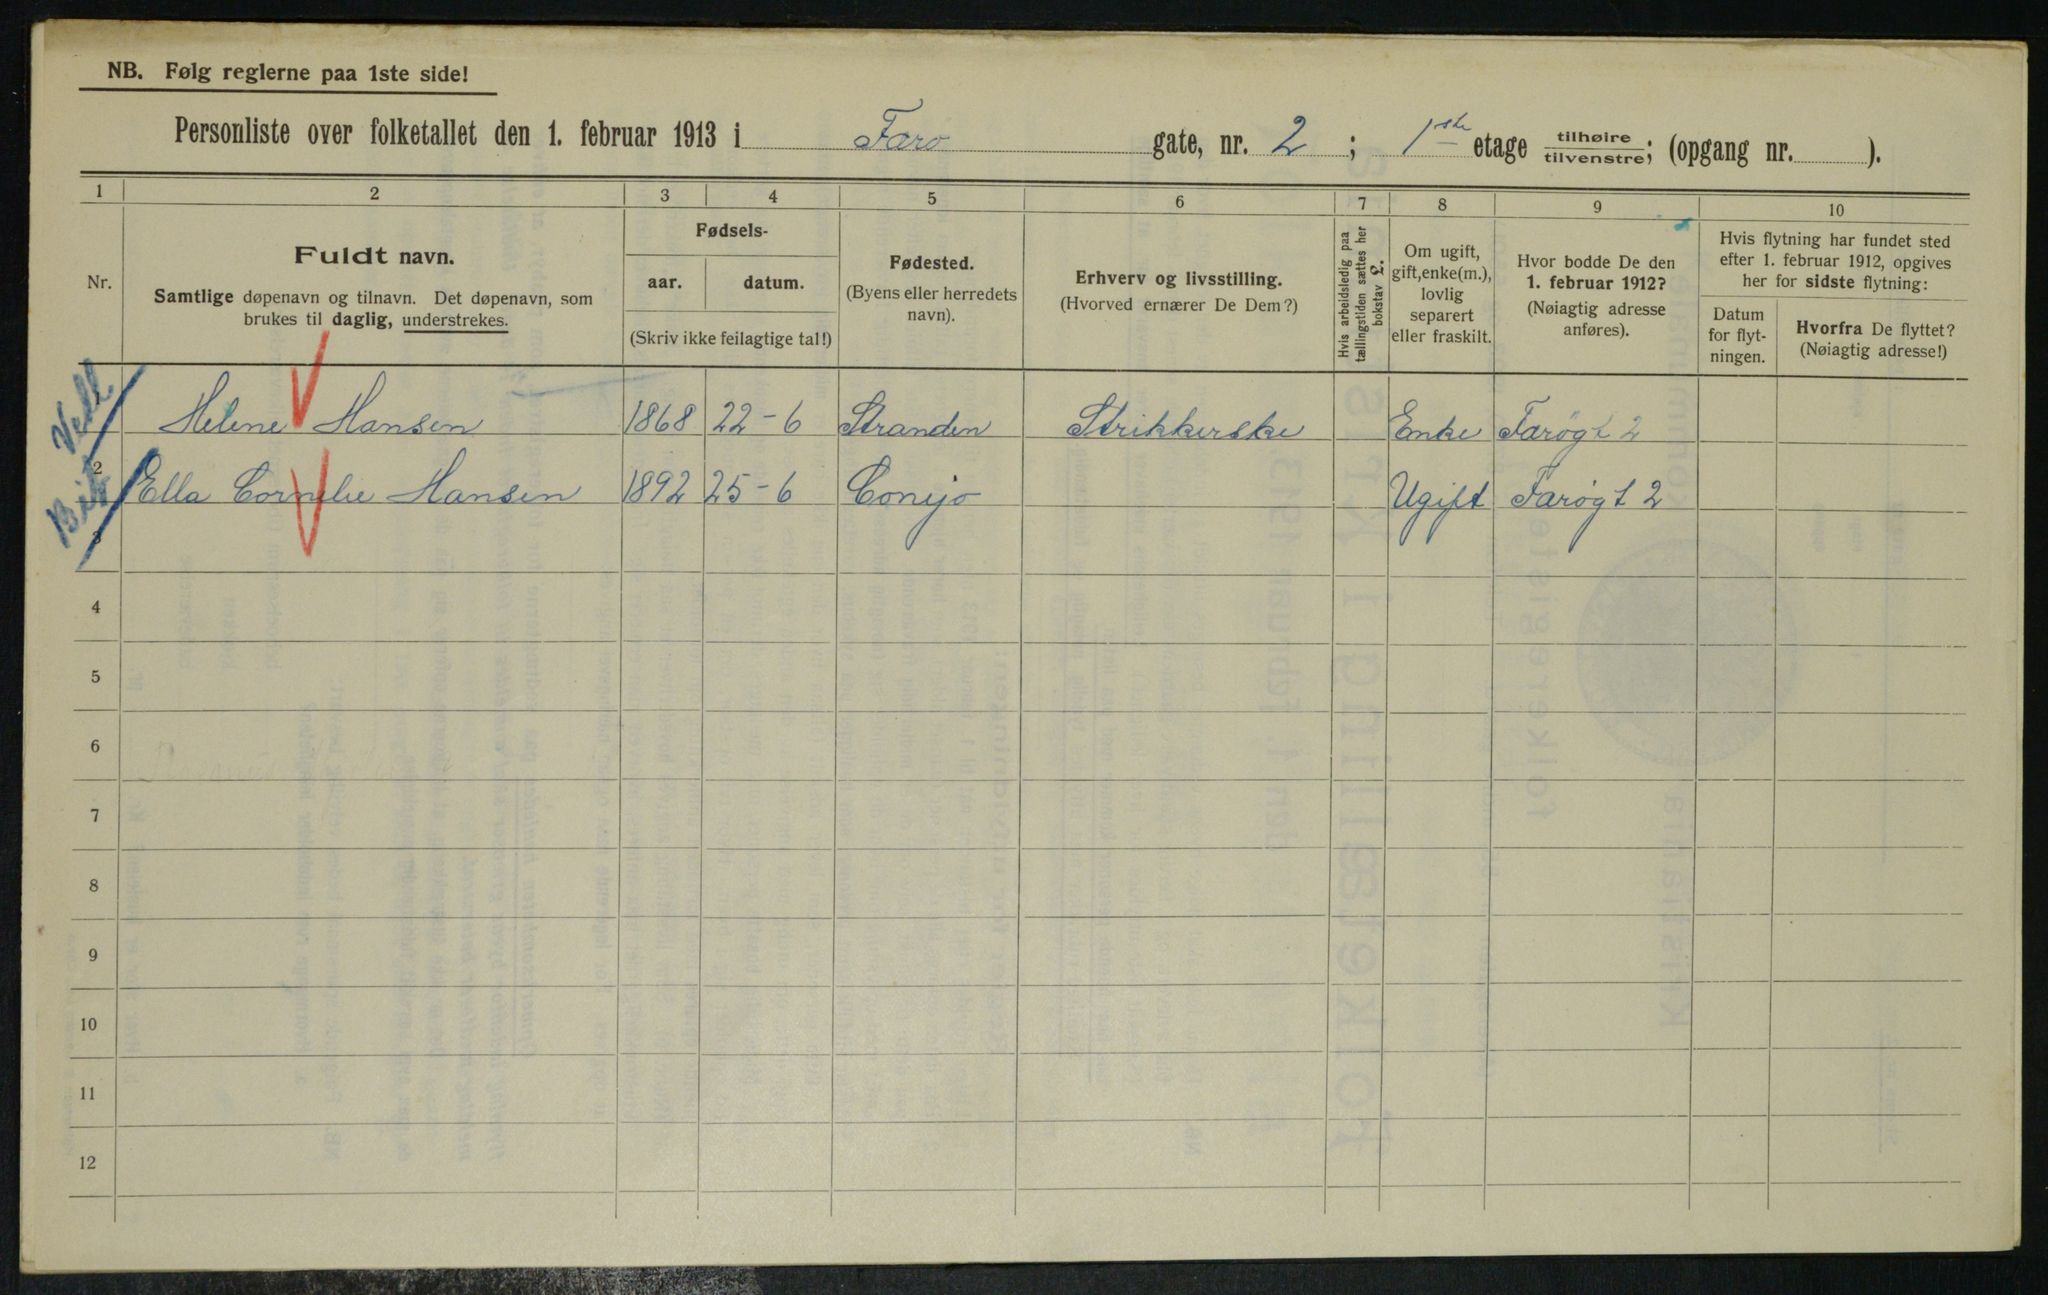 NB. Følg reglerne paa 1ste side!
Personliste over folketallet den 1. februar 1913 i Færo gate, nr. 2 ; 1ste etage tilhøire / tilvenstre; (opgang nr. ).
1 2 3 4 5 6 7 8 9 10
Nr.
Fuldt navn.
Samtlige døpenavn og tilnavn. Det døpenavn, som
brukes til daglig, understrekes.
Fødsels-
aar. datum.
(Skriv ikke feilagtige tal!)
Fødested.
(Byens eller herredets
navn).
Erhverv og livsstilling.
(Hvorved ernærer De Dem?)
Hvis arbeidsledig paa
tællingstiden sættes her
bokstav L.
Om ugift,
gift, enke(m.),
lovlig
separert
eller fraskilt.
Hvor bodde De den
1. februar 1912?
(Nøiagtig adresse
anføres).
Hvis flytning har fundet sted
efter 1. februar 1912, opgives
her for sidste flytning:
Datum
for flyt-
ningen.
Hvorfra De flyttet?
(Nøiagtig adresse!)
Helene Hansen 1868 22-6 Stranden Strikkerske Enke Færøgt 2
2 Ella Cornelie Hansen 1892 25-6 Ugift Færøgt 2
3
4
5
6
7
8
9
10
11
12